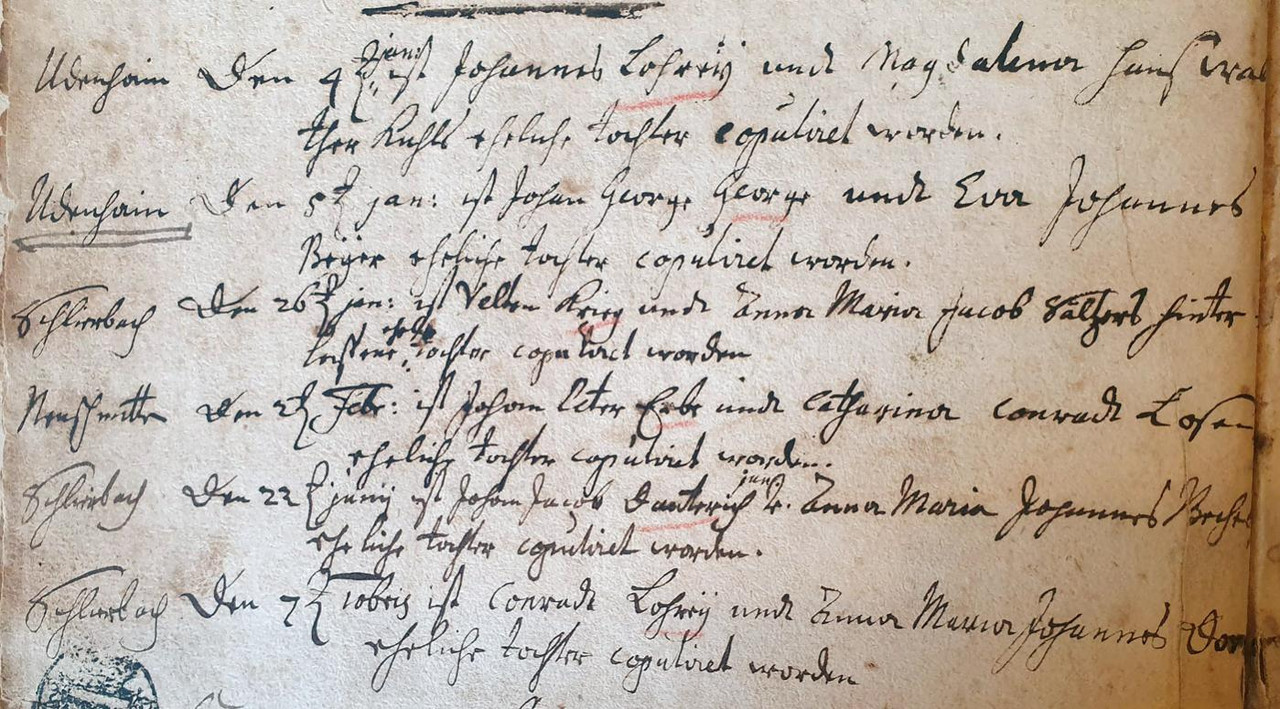 Udenhain Den 4t janⁱ ist Johannes Lohreÿ undt Magdalena Hanß Wal
ther Ruhls eheliche tochter copuliret worden.
Udenhain Den 8t jan: ist Johan George George undt Eva Johannes
eheliche tochter copuliret worden.
Schlierbach Den 26t jan: ist Velten Krieg undt Anna Maria Jacob Saltzers hinter
lassene ehel. tochter copuliret worden
Neuschmitte Den 2t Febr: ist Johan Peter Erbe undt Catharina Conradt Losen
eheliche tochter copuliret worden.
Schlierbach Den 22t junÿ ist Johan Jacob Dauterich jun. u. Anna Maria Johannes
eheliche tochter copuliret worden.
Schlierbach Den 7t 10bris ist Conradt Lohreÿ undt Anna Maria Johannes
eheliche tochter copuliret worden